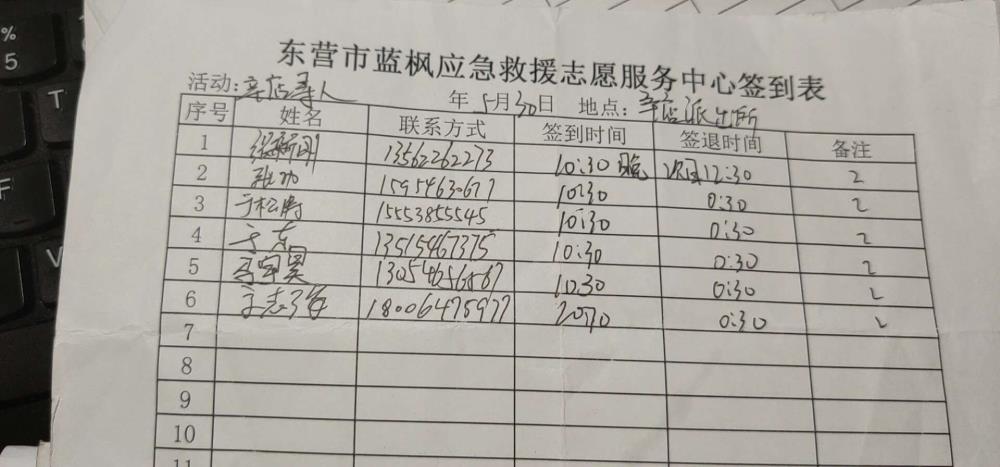 东营市蓝枫应急救援志愿服务中心签到表
活动:辛店寻人 年 5月30日 地点:辛店派出所
序号 姓名 联系方式 签到时间 签退时间 备注
1 13562262273 10:30晚 次日12:30 2
2 张功 10:30 0:30 2
3 于松涛 15553855545 10:30 0:30 2
4 于东 13515467375 10:30 0:30 2
5 10:30 0:30 2
6 18006475977 0:30 2
7
8
9
10
11
% 5
T
F
V